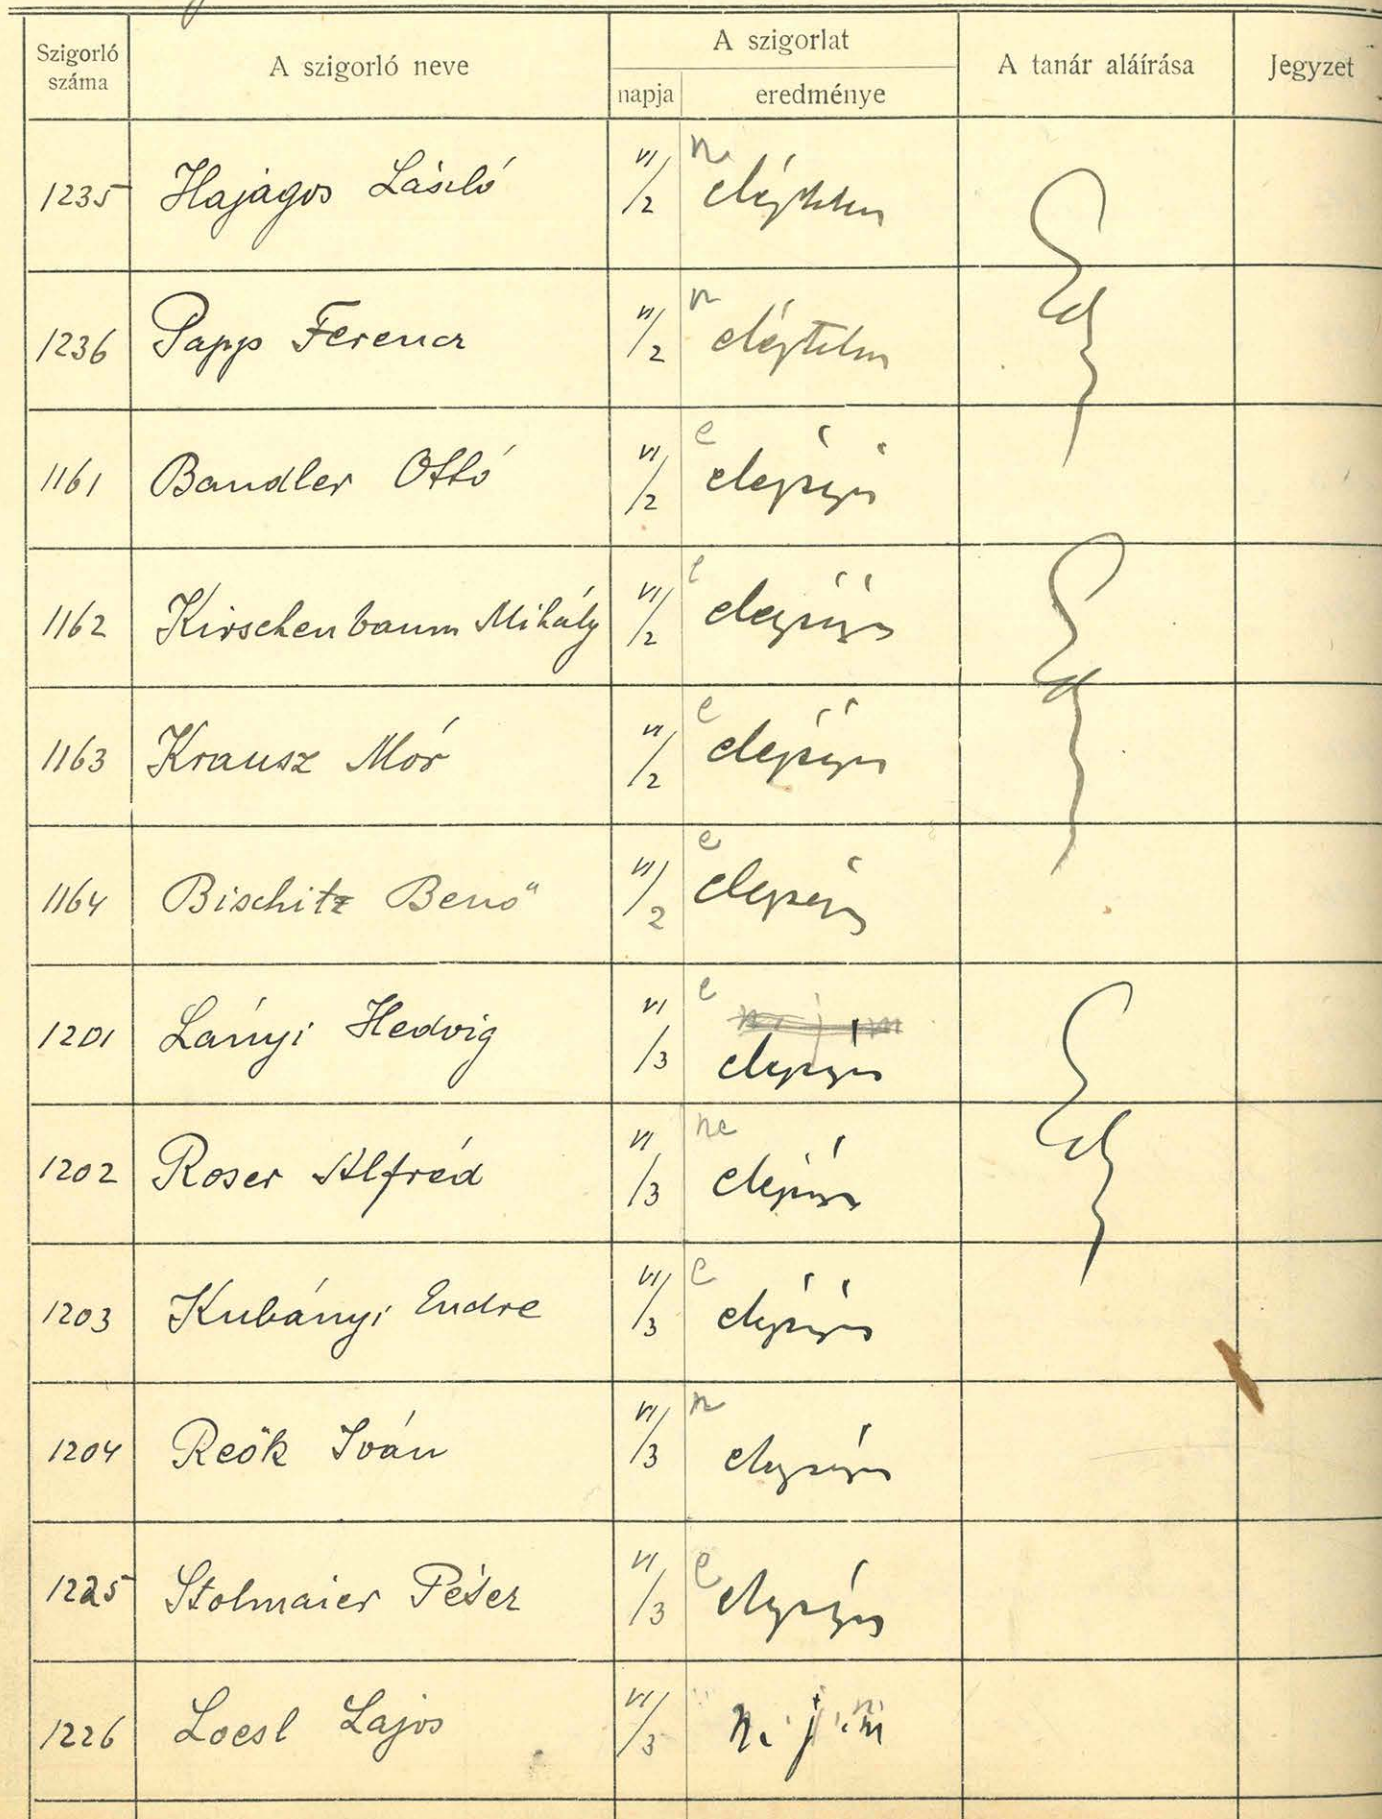 Szigorló száma
A szigorló neve
A szigorlat
napja
eredménye
A tanár aláírása
Jegyzet
1235 Hajagos László VI/2 n elégtelen
1236 Papp Ferencz VI/2 n elégtelen
1161 Bandler Ottó VI/2 e elégséges
1162 Kirschenbaum Mihály VI/2 e elégséges
1163 Krausz Mór VI/2 e elégséges
1164 Bischitz Benő VI/2 e elégséges
1201 Lányi Hedvig VI/3 e
elégséges
1202 Roser Alfréd VI/3 ne elégséges
1203 Kubányi Endre VI/3 e elégséges
1204 Reök Iván VI/3 n elégséges
1225 Stolmaier Péter VI/3 e elégséges
1226 Loesl Lajos VI/3